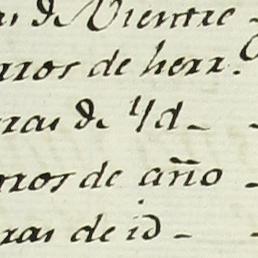 as de Vientre -
rros de herr.
rras de Yd -
rros de año -
rras de id -